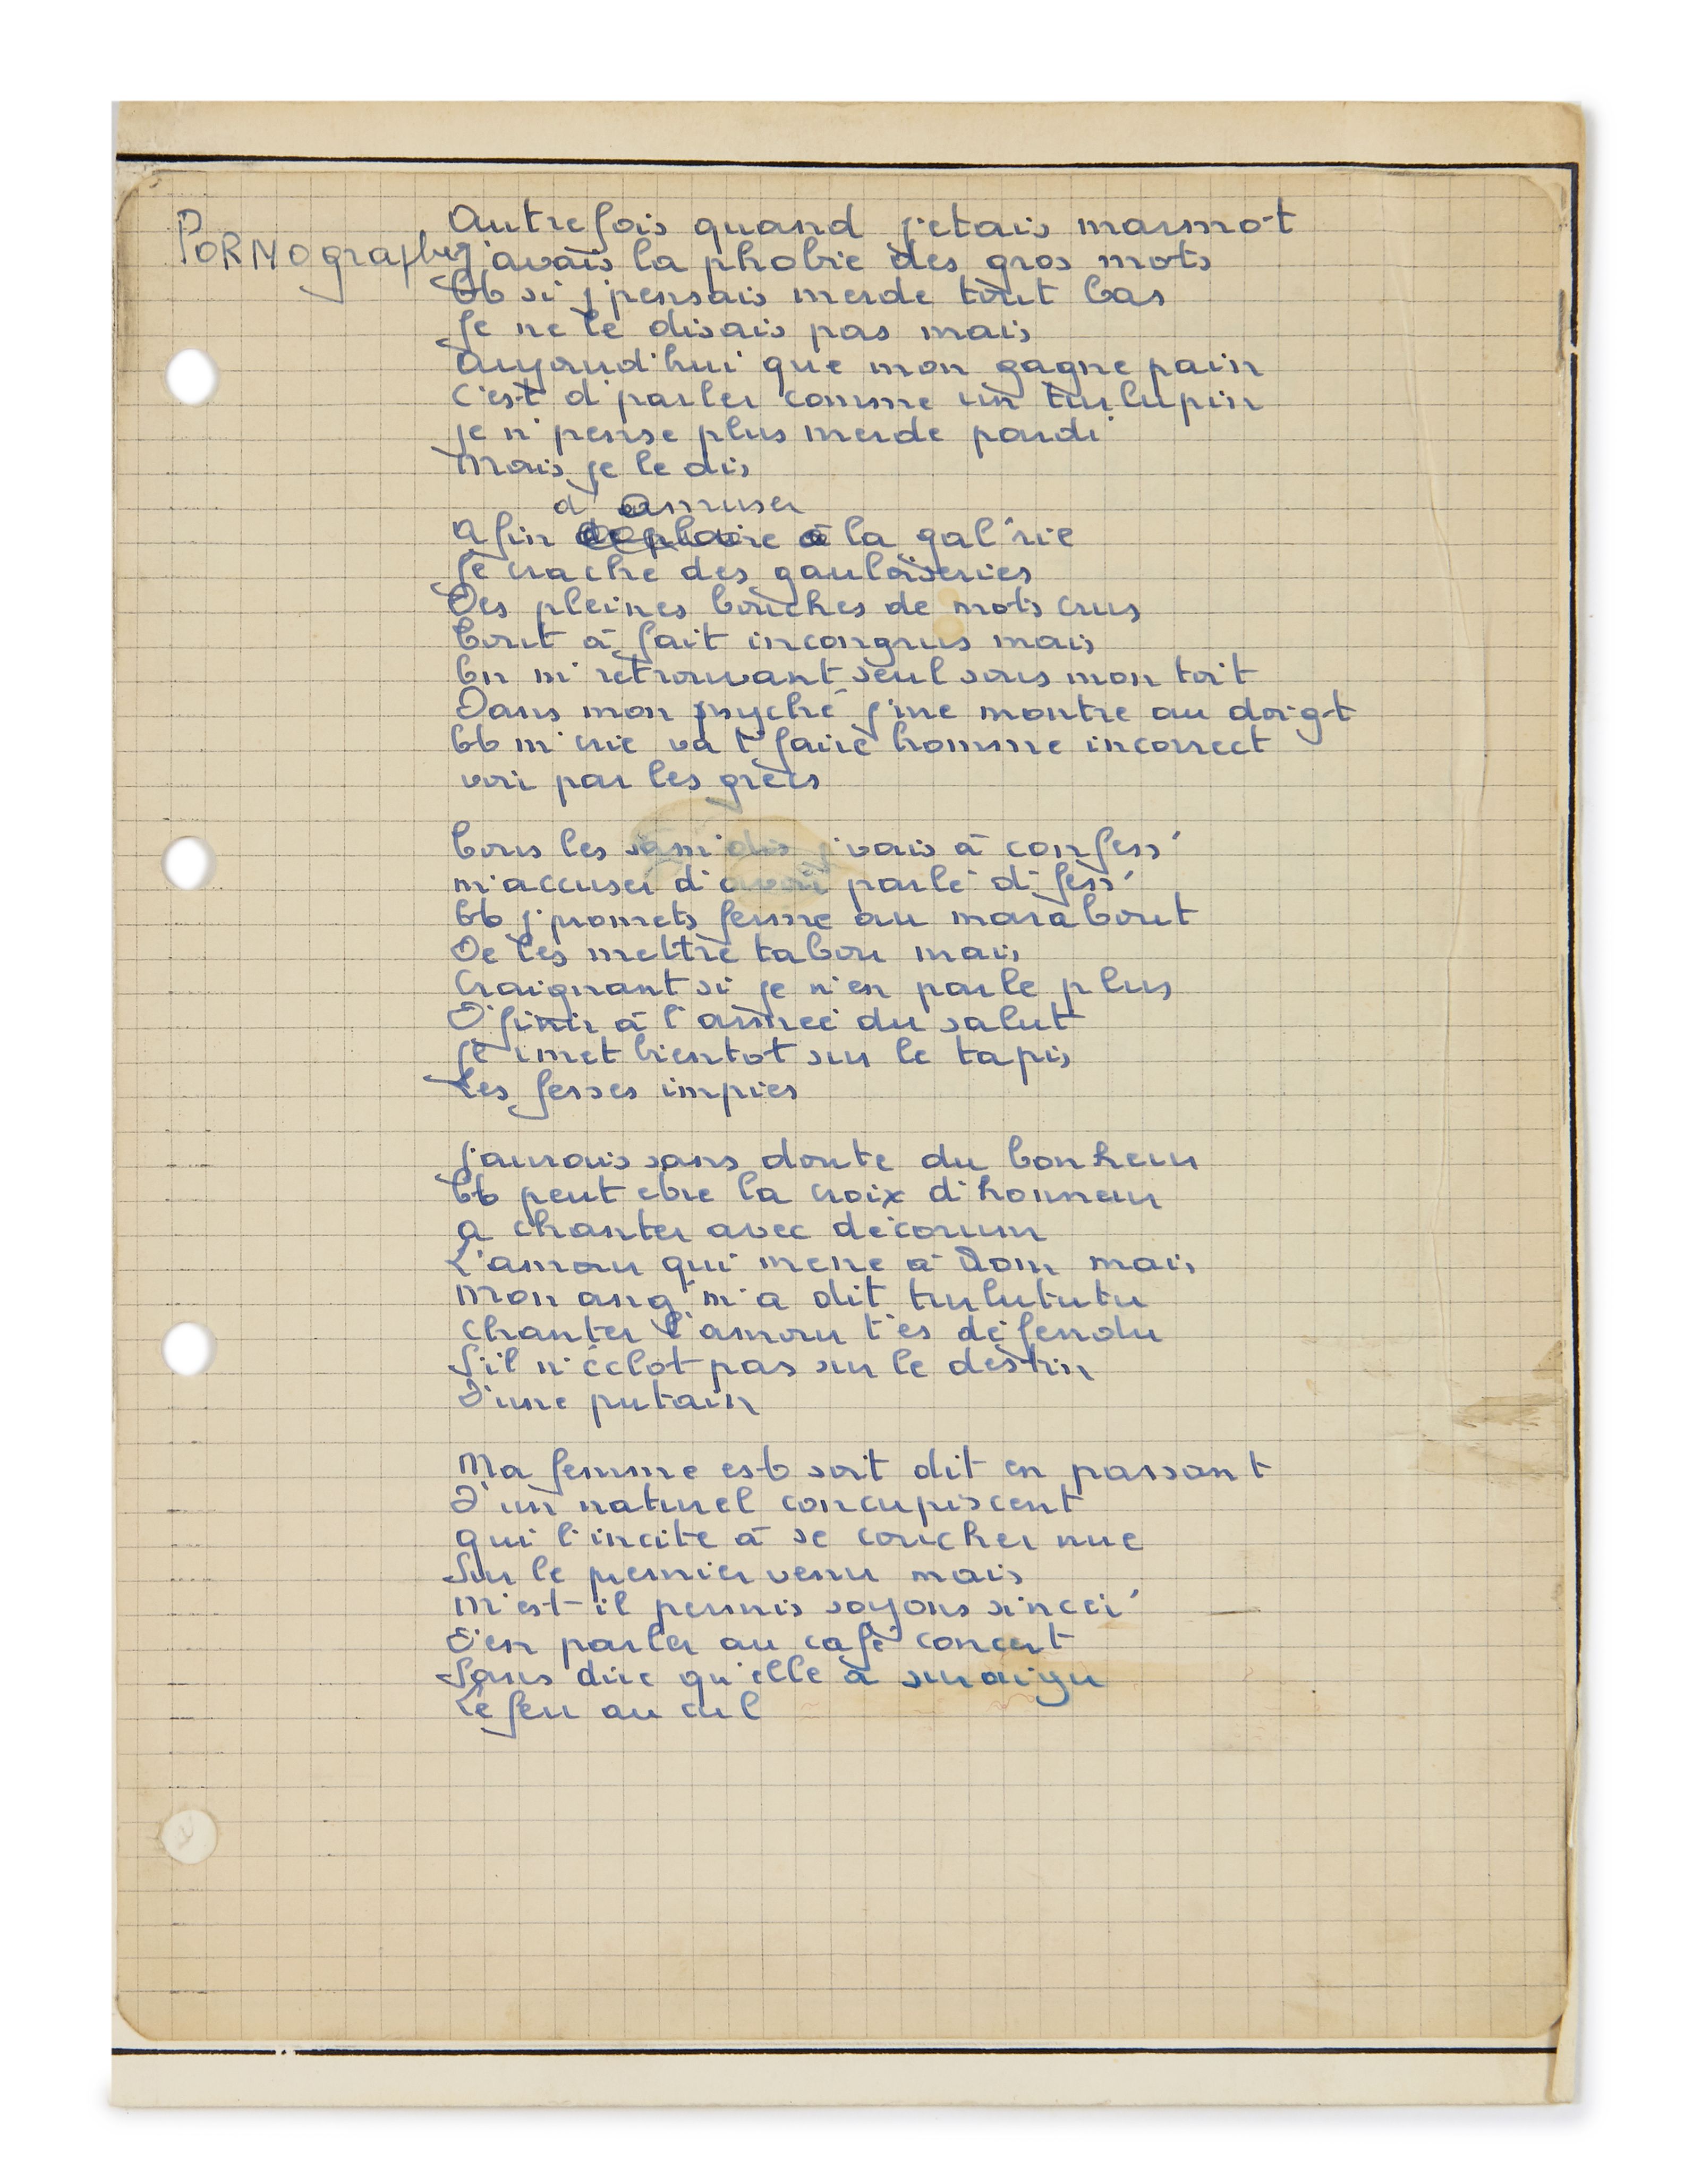 PORNographe
Autrefois quand j'etais marmot
J'avais la phobie des gros mots
Et si j'pensais merde tout bas
Je ne le disais pas mais
Aujourd'hui que mon gagne pain
C'est d'parler comme un turlupin
je n'pense plus merde pardi
Mais je le dis
d'amuser
Afin de plaire à la gal'rie
Je crache des gauloiseries
Des pleines bouches de mots crus
Tout à fait incongrus mais
En m'retrouvant seul sous mon toit
Dans mon psyché j'me montre au doigt
Et m'crie va t'faire homme incorrect
voir par les grecs
Tous les sam'dis j'vais à confess'
m'accuser d'avoir parlé d'fess'
Et j'promets ferme au marabout
De les mettre tabou mais
Craignant si je n'en parle plus
D'finir à l'armée du salut
Je r'met bientot sur le tapis
Les fesses impies
J'aurais sans doute du bonheur
Et peut etre la croix d'honneur
A chanter avec décorum
L'amour qui mene à Rom mais
Mon ang' m'a dit turlututu
Chanter l'amour t'es défendu
S'il n'éclot pas sur le destin
D'une putain
Ma femme est soit dit en passant
D'un naturel concupiscent
qui l'incite à se coucher nue
Sur le premier venu mais
M'est-il permis soyons sincer'
D'en parler au café concert
Sans dire qu'elle à suraigu
Le feu au cul